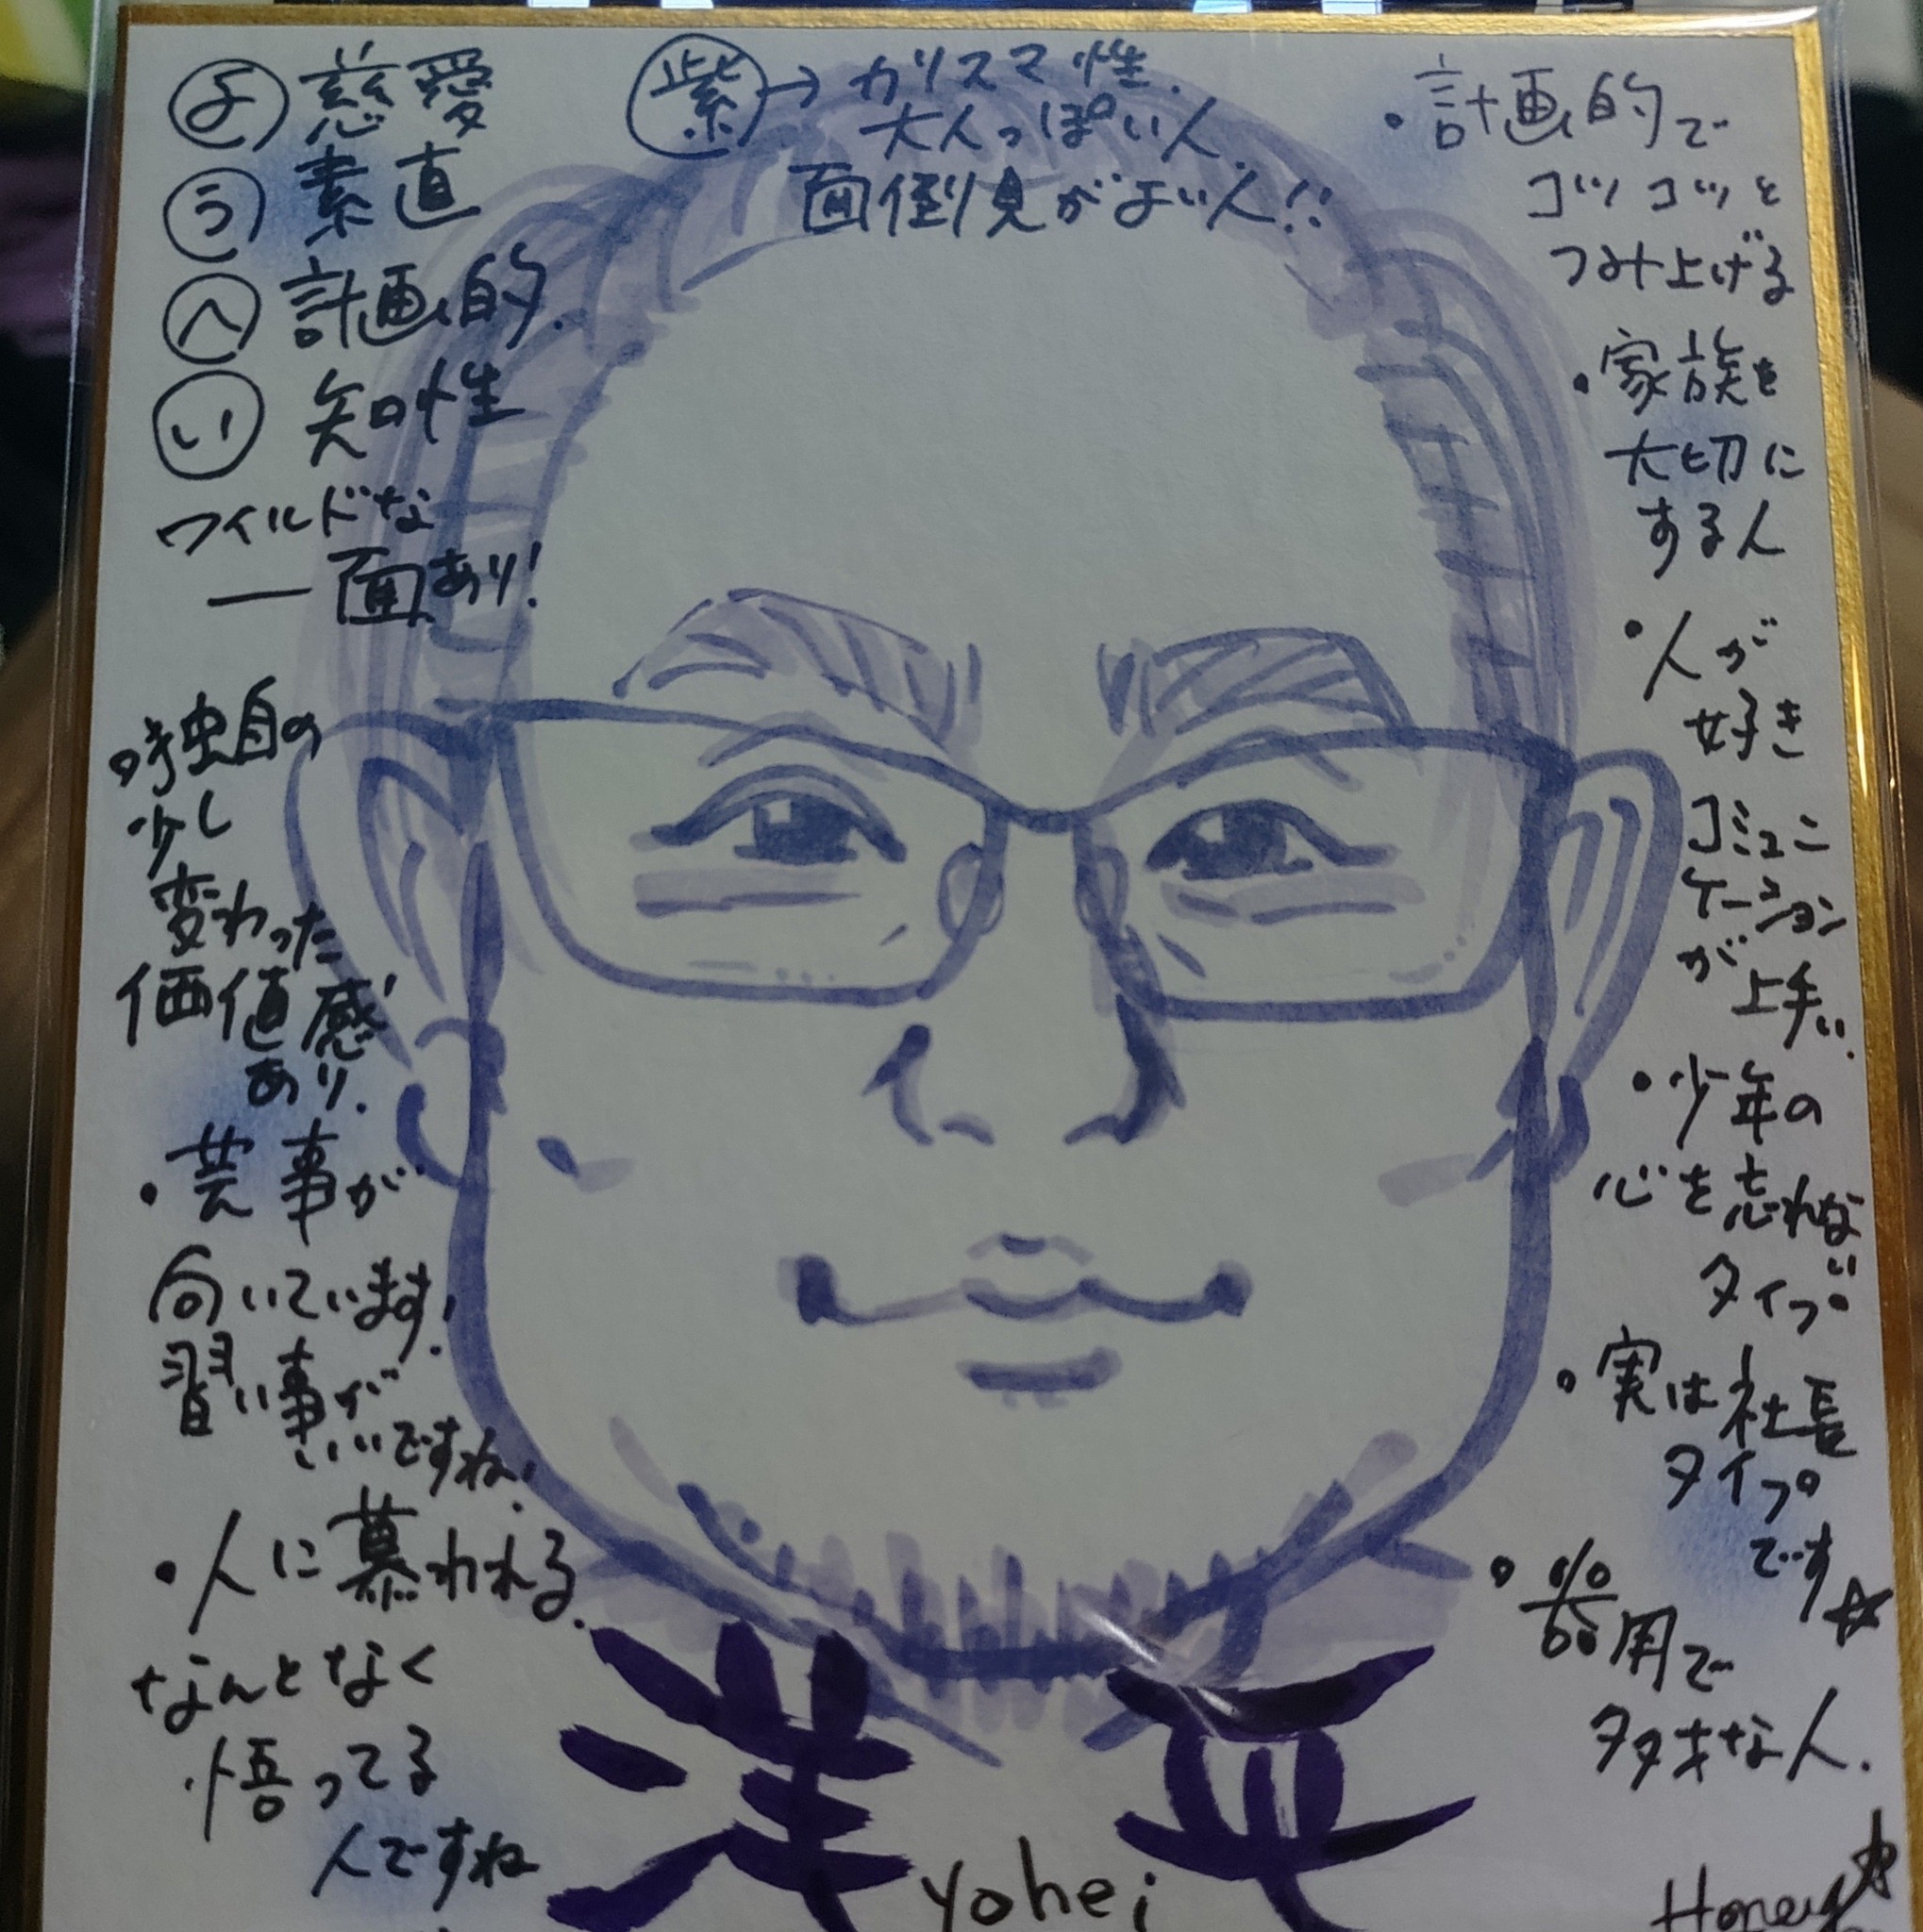 よ 慈愛
う 素直
へ 計画的.
い 知性
ワイルドな
一面あり!
紫→カリスマ性.
大人っぽい人.
面倒見がよい人!!
・計画的で
コツコツと
つみ上げる
・家族を
大切に
する人
・人が
好き
コミュニ
ケーション
が上手い.
・少年の
心を忘れない
タイプ
・実は社長
タイプ
です☆
・器用で
多才な人.
・独自の
少し
変わった
価値感
あり.
・芸事が
向いています!
習い事が
いいですね!
・人に慕われる.
なんとなく
悟ってる
人ですね
洋平
yohei
Honey